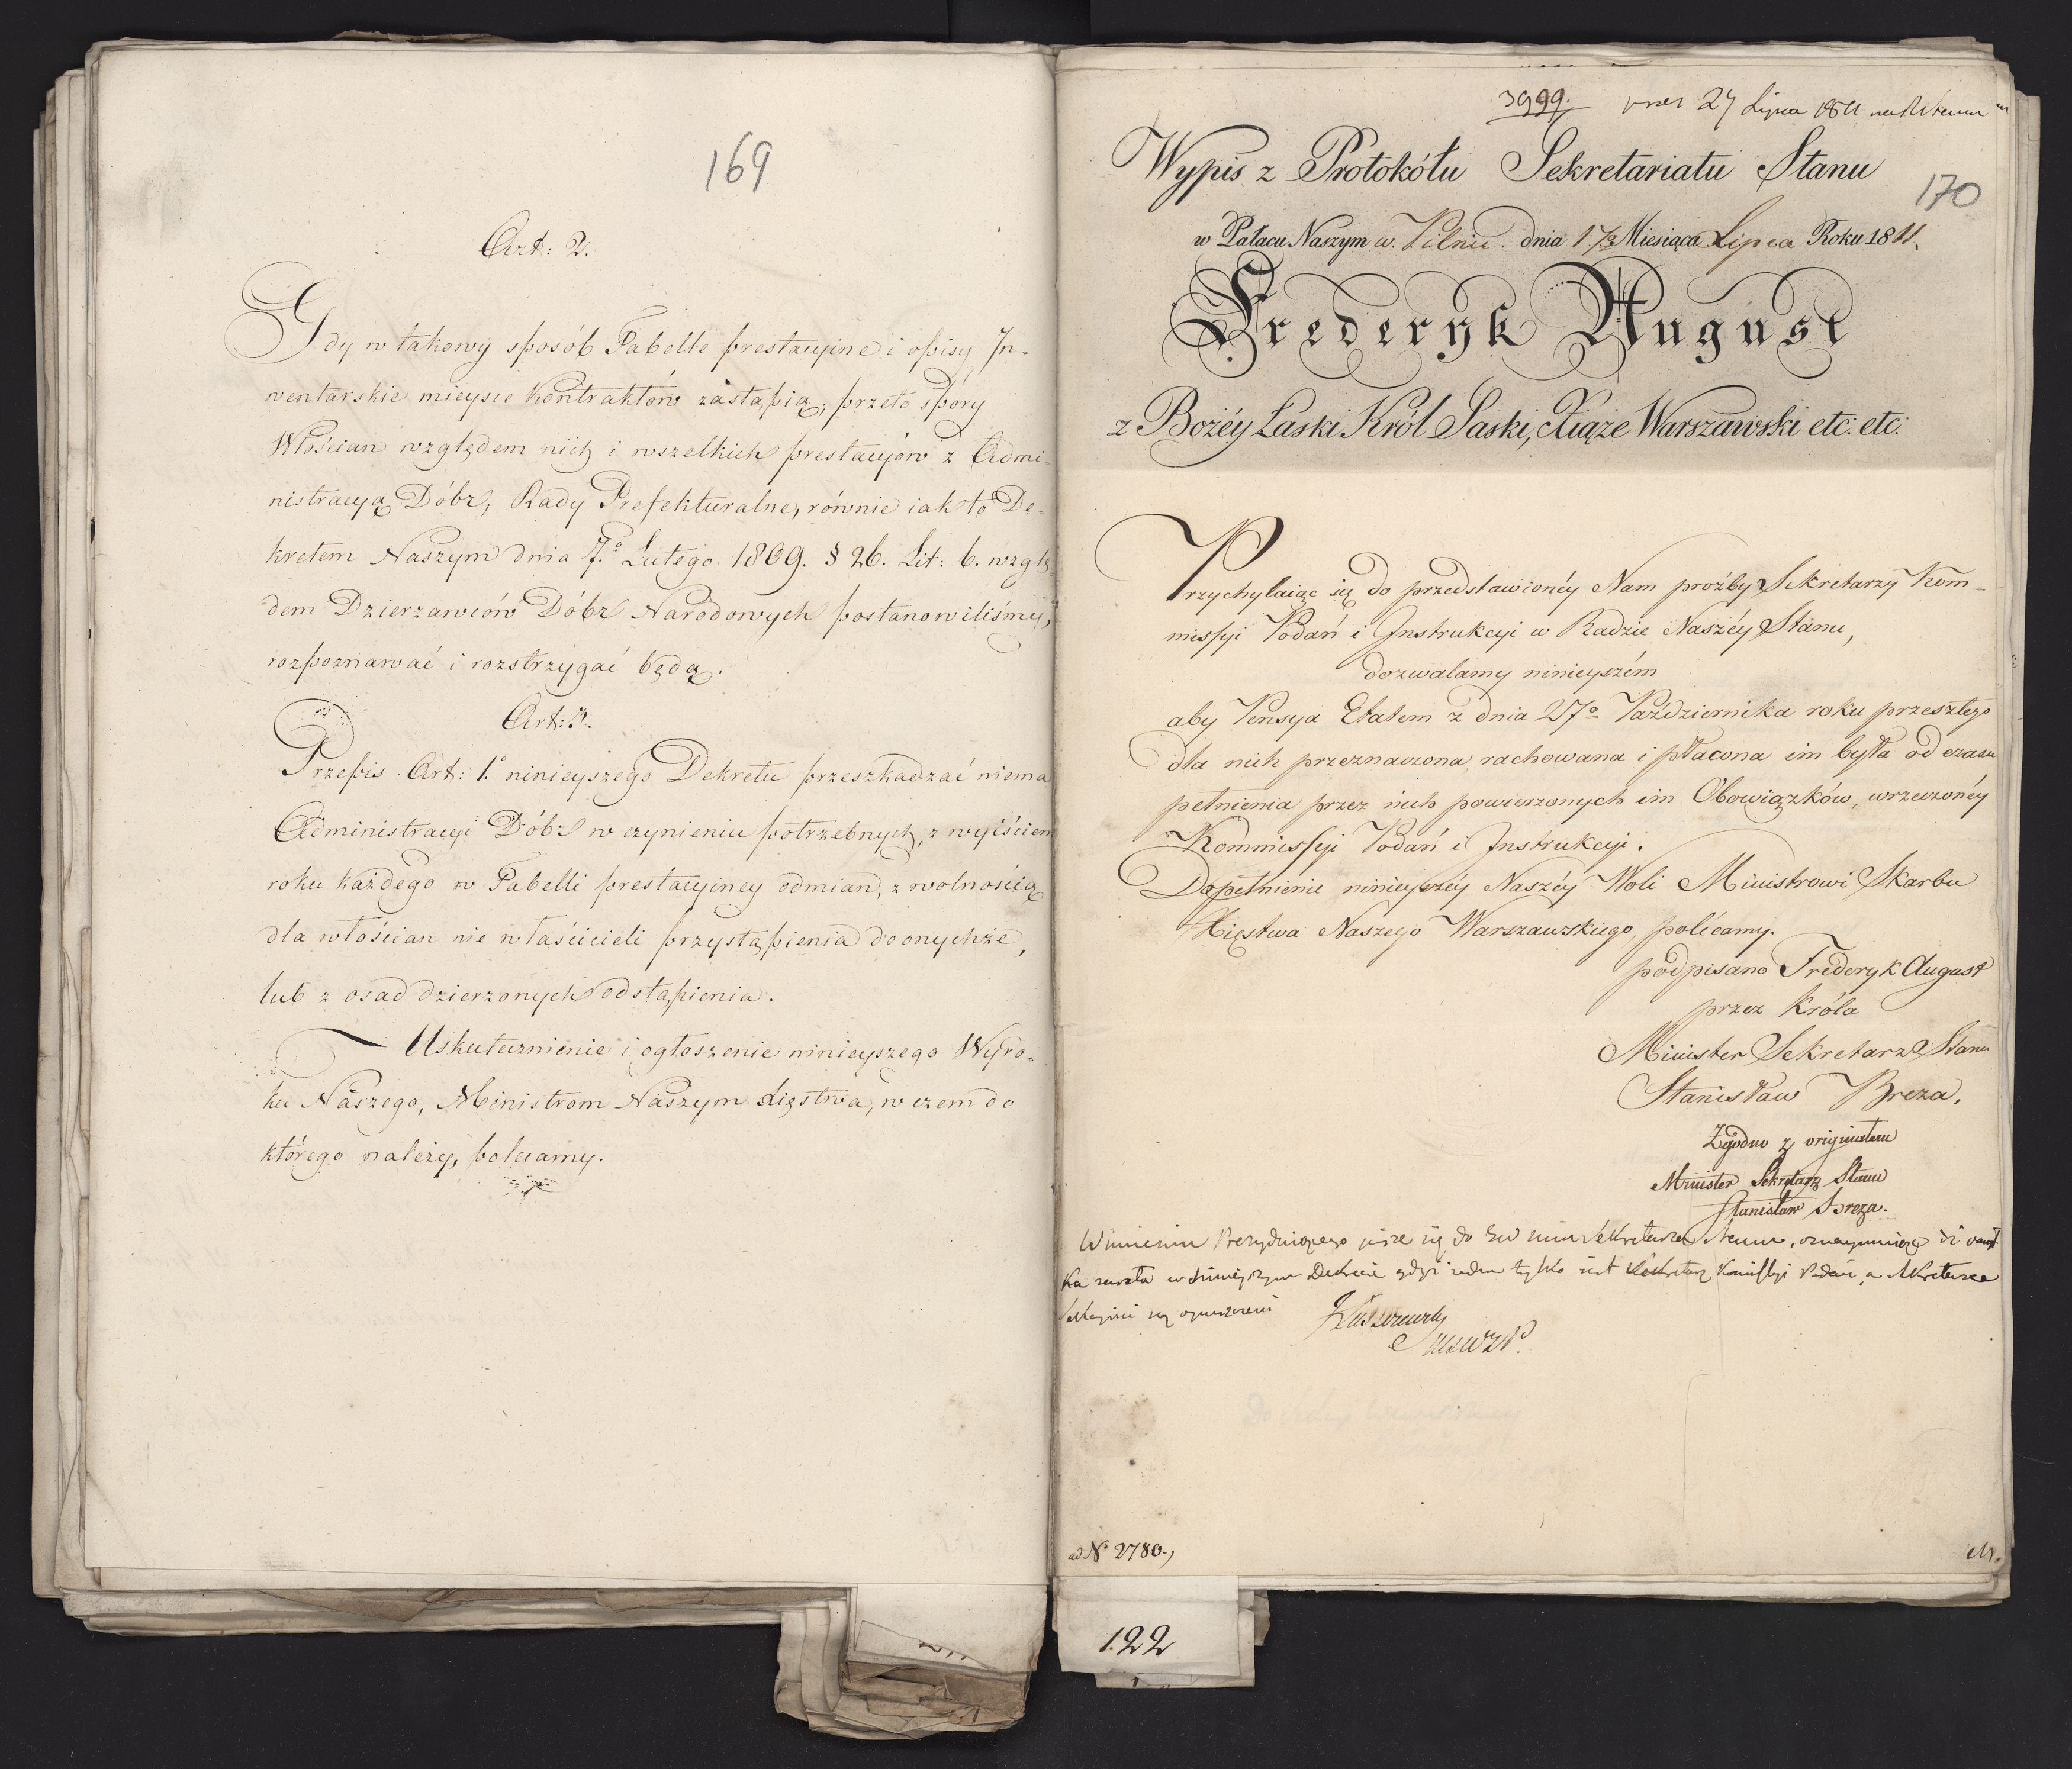 169
Art: 2.
Gdy w takowy sposób Tabelle prestacyine i opisy In-
wentarskie mieysce Kontraktów zastąpią; przeto spory
Włościan względem nich i wszelkich prestacyów z Admi-
nistracyą Dóbr, Rady Prefekturalne, równie iak to De-
kretem Naszym dnia 7.º Lutego 1809. § 26. Lit: b. wzglę-
dem Dzierzawców Dóbr Narodowych postanowiliśmy,
rozpoznawać i rozstrzygać będą.
Art: 3.
Przepis Art: 1.º ninieyszego Dekretu przeszkadzać niema
Administracyi Dóbr w czynieniu potrzebnych, z wyiściem
roku każdego w Tabelli prestacyiney odmian, z wolnością
dla włościan nie właścicieli przystąpienia do onychże,
lub z osad dzierzonych odstąpienia.
Uskutecznienie i ogłoszenie ninieyszego Wyro-
ku Naszego, Ministrom Naszym Xięstwa, w czem do
którego należy, polecamy.
3999. 27 Lipca 1811
Wypis z Protokółu Sekretariatu Stanu
170
w Pałacu Naszym w. Pilnic. dnia 17º Miesiąca Lipca Roku 1811.
Frederyk August
z Bożéy Łaski Król Saski, Xiąże Warszawski etc: etc:
Przychylaiąc się do przedstawionéy Nam proźby Sekretarzy Kom-
missyi Podań i Instrukcyi w Radzie Naszéy Stanu,
dozwalamy ninieyszém
aby Pensya Etatem z dnia 27º Października roku przeszłego
dla nich przeznaczona, rachowana i płacona im była od czasu
pełnienia przez nich powierzonych im Obowiązków, wrzeczonéy
Kommissyi Podań i Instrukcyi.
Dopełnienie ninieyszéy Naszéy Woli Ministrowi Skarbu
Xięstwa Naszego Warszawskiego, polécamy.
podpisano Frederyk August
przez Króla
Minister Sekretarz Stanu
Stanisław Breza.
Zgodno z originałem
Minister Sekretarz Stanu
Stanisław Breza.
W imieniu Prezyduiącego pisze się do Sekretarza Stanu, oznaymuiąc iż
ka zaszła w ninieyszym Dekrecie gdyż ieden tylko iest Sekretarz Komissyi Podań, a Sekretarze
są opuszczeni
ad Nº 2780.
M.
122